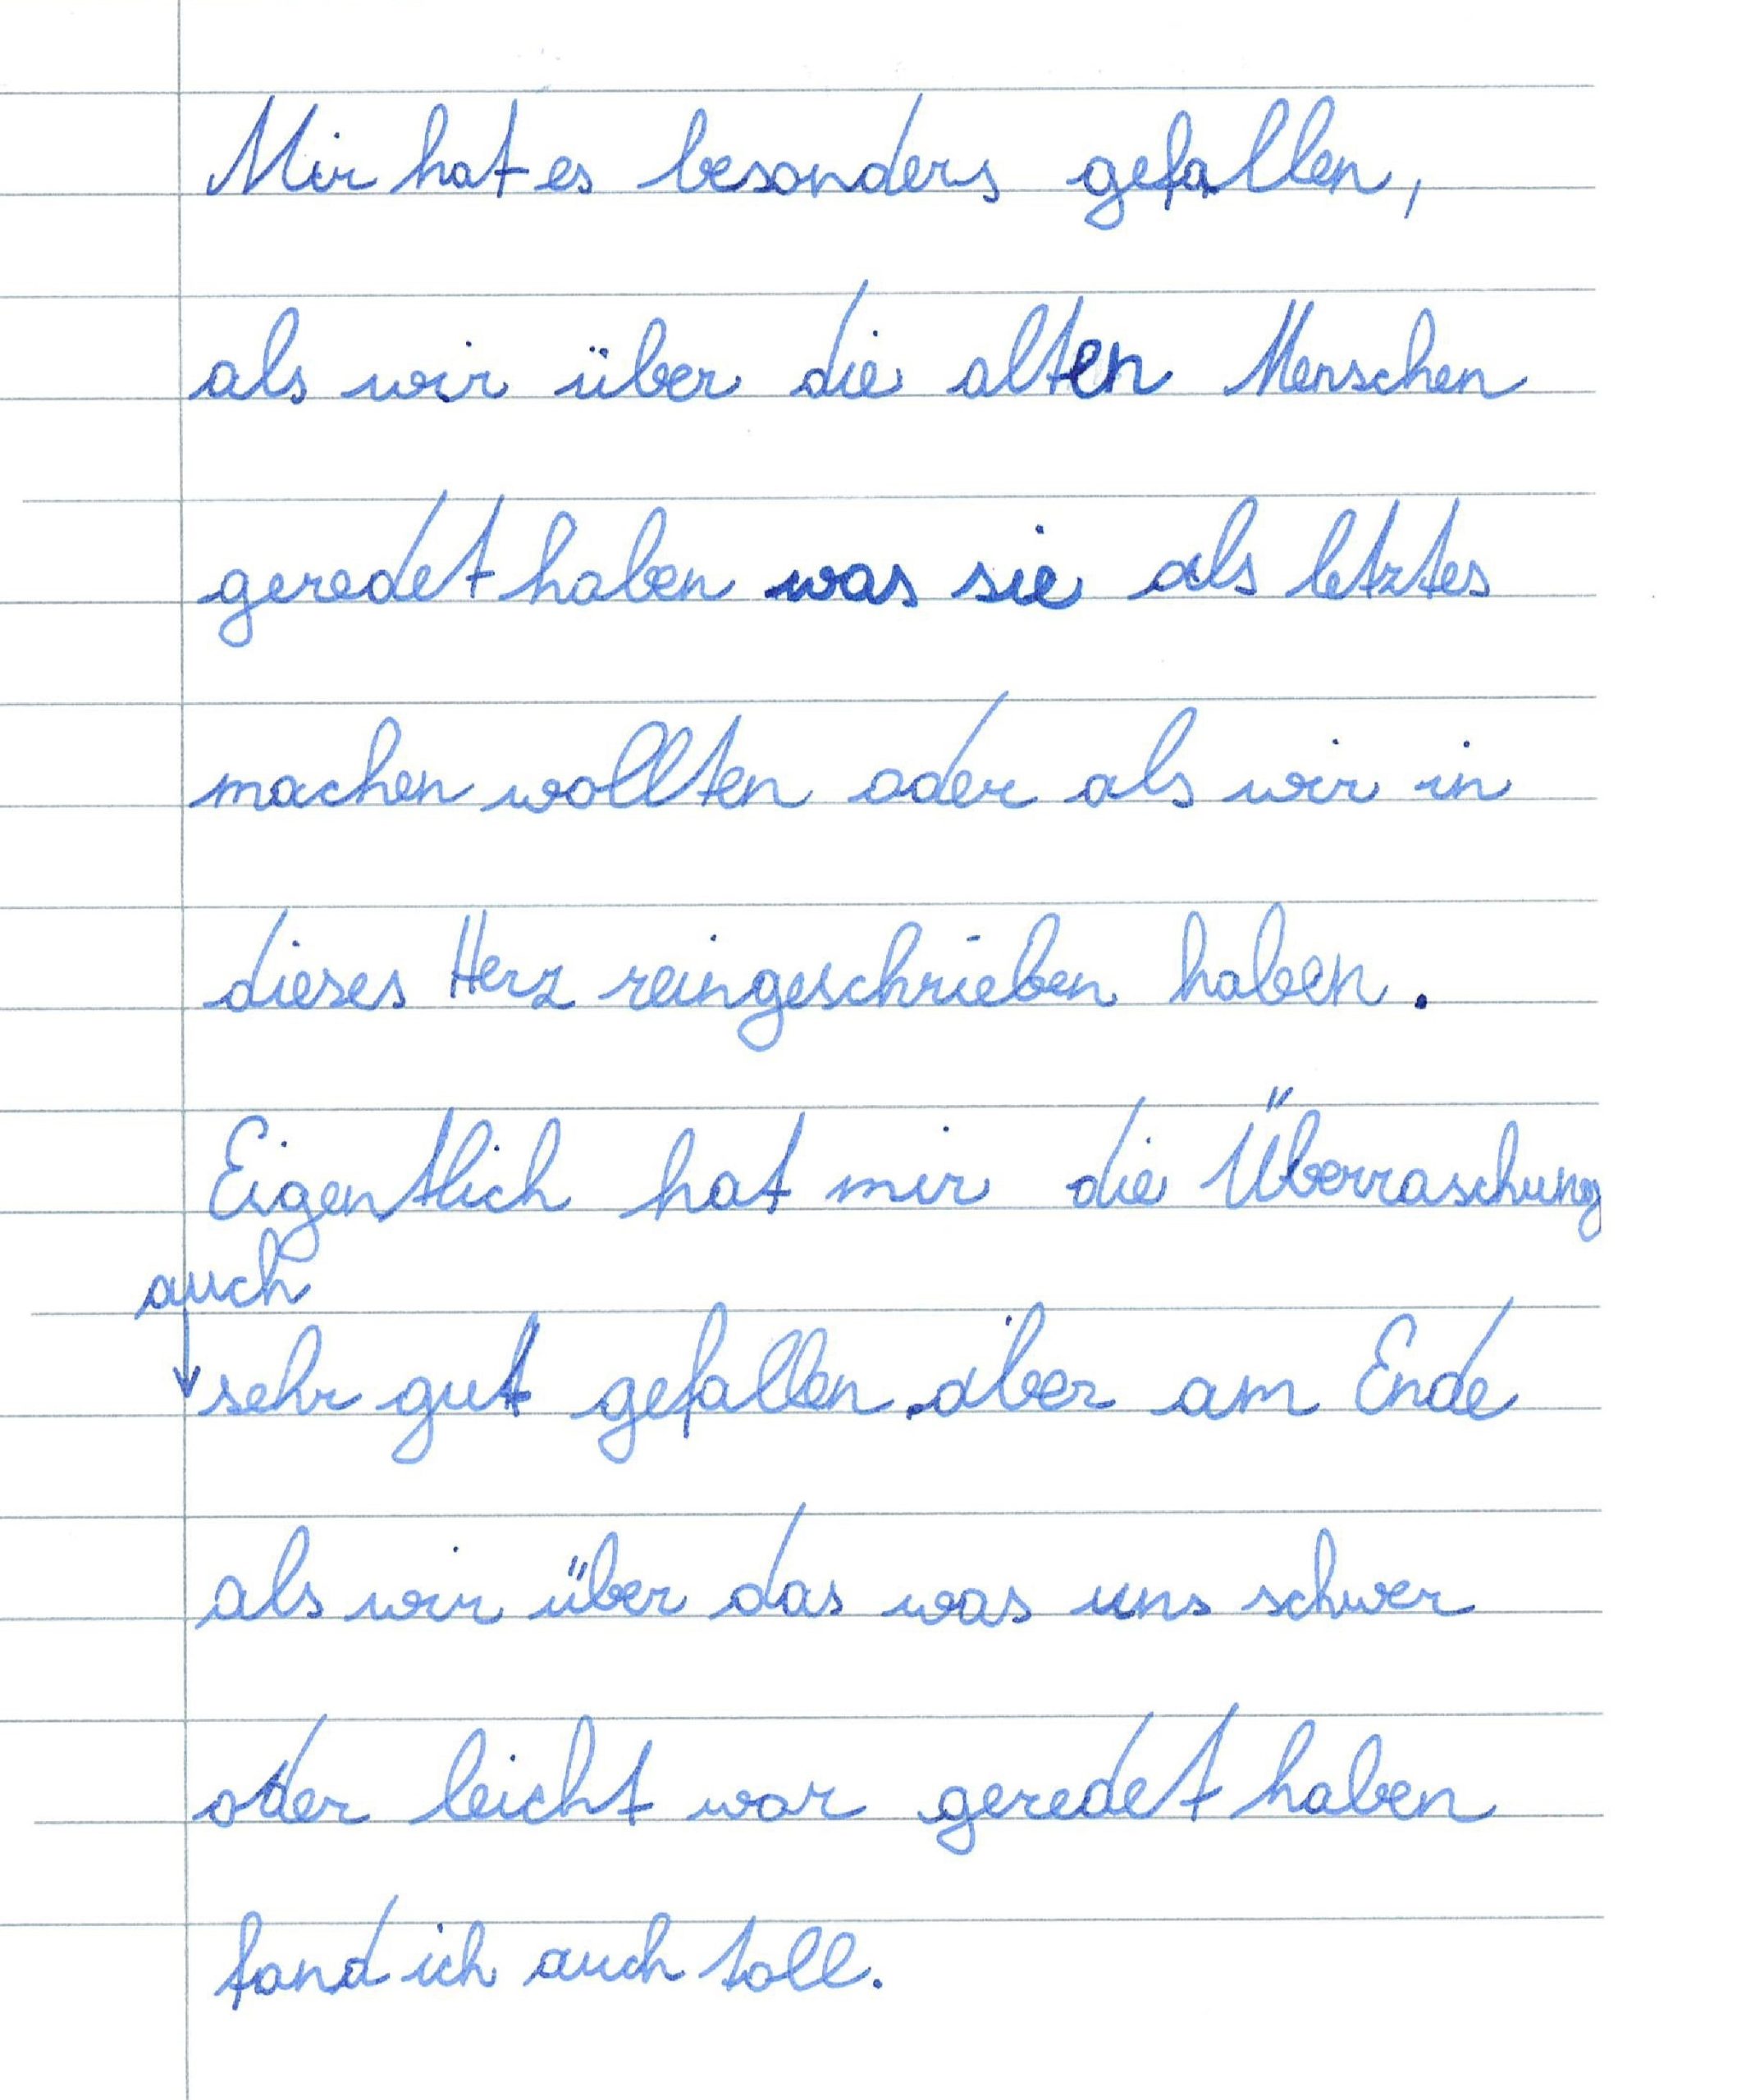 Mir hat es besonders gefallen,
als wir über die alten Menschen
geredet haben was sie als letztes
machen wollten oder als wir in
dieses Herz reingeschrieben haben.
Eigentlich hat mir die Überraschung
auch
sehr gut gefallen aber am Ende
als wir über das was uns schwer
oder leicht war geredet haben
fand ich auch toll.